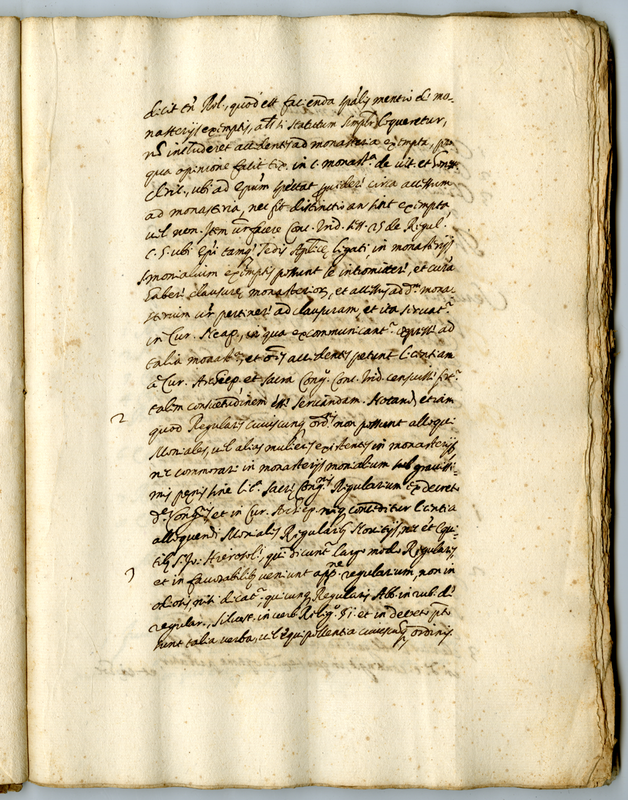 dicit enim Rol., quod est facienda spalis mentio de mo-
nasterijs exemptis, statutum simplr loqueretur,
includeret accedentes ad monasteria exempta, pro
qua opinione facit tex. in c. monasta de vit. et
cleric. ubi ad epum spectat providere circa accessum
ad monasteria, nec fit distinctio an sint exempta,
vel non. Item facere Conc. Trid. sess. 25 de Regul.
c. 5. ubi Epi tamq Sedis Aplice legati, in monasterijs
monialium exemptis possunt se intromittere, et cura
habere clausure monasteriorum, et accessus ad mona-
sterium pertinere ad clausuram, et ita servatr
in Cur. Archiep., qua excommunicantr ad
talia monasteria, et accedentes petunt licentiam
a Cur. Archiep. et Sacra Cong. Conc. Trid. censuisse
talem consuetudinem esse servandam. Notand. etiam
2 quod Regulares cuiuscunq ordis non possunt alloqui
Moniales, vel alias mulieres existentes in monasterijs
nec commorari in monasterijs monialium sub gravissi-
mis penis sine lic. Sacre Congnis Regularium ex decret.
de et in Cur. Archiep. neq conceditur licentia
alloquendi Moniales Regularibus Novitijs, nec et Equi-
tibus S. Jo. Hierosoli., qui dicunt large modo Regulares
3 et in favorabilibus veniunt appne regularium, non in
odiosis, nisi dicatr, quicunq Regulares Abb. in rub. de
regular., Silvest. in verb. Relig. et in decreto
sunt talia verba, vel equipollentia cuiuscunq ordinis